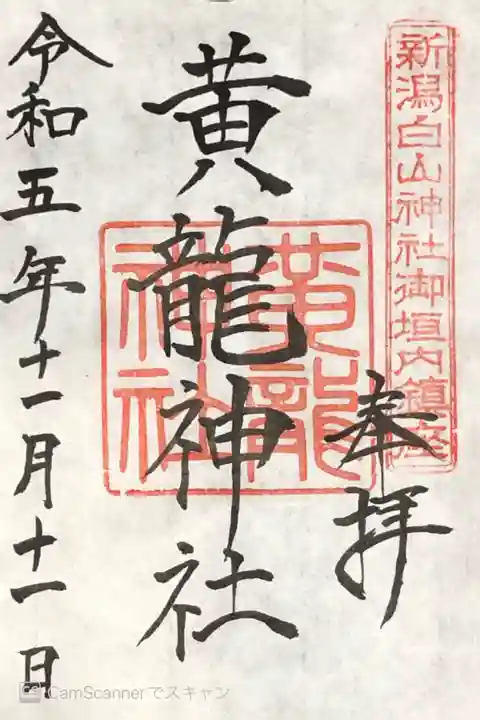 新潟白山神社御垣内鎮座
奉拝
黄龍神社
黄龍
神社
令和五年十一月十一日
CS CamScannerでスキャン